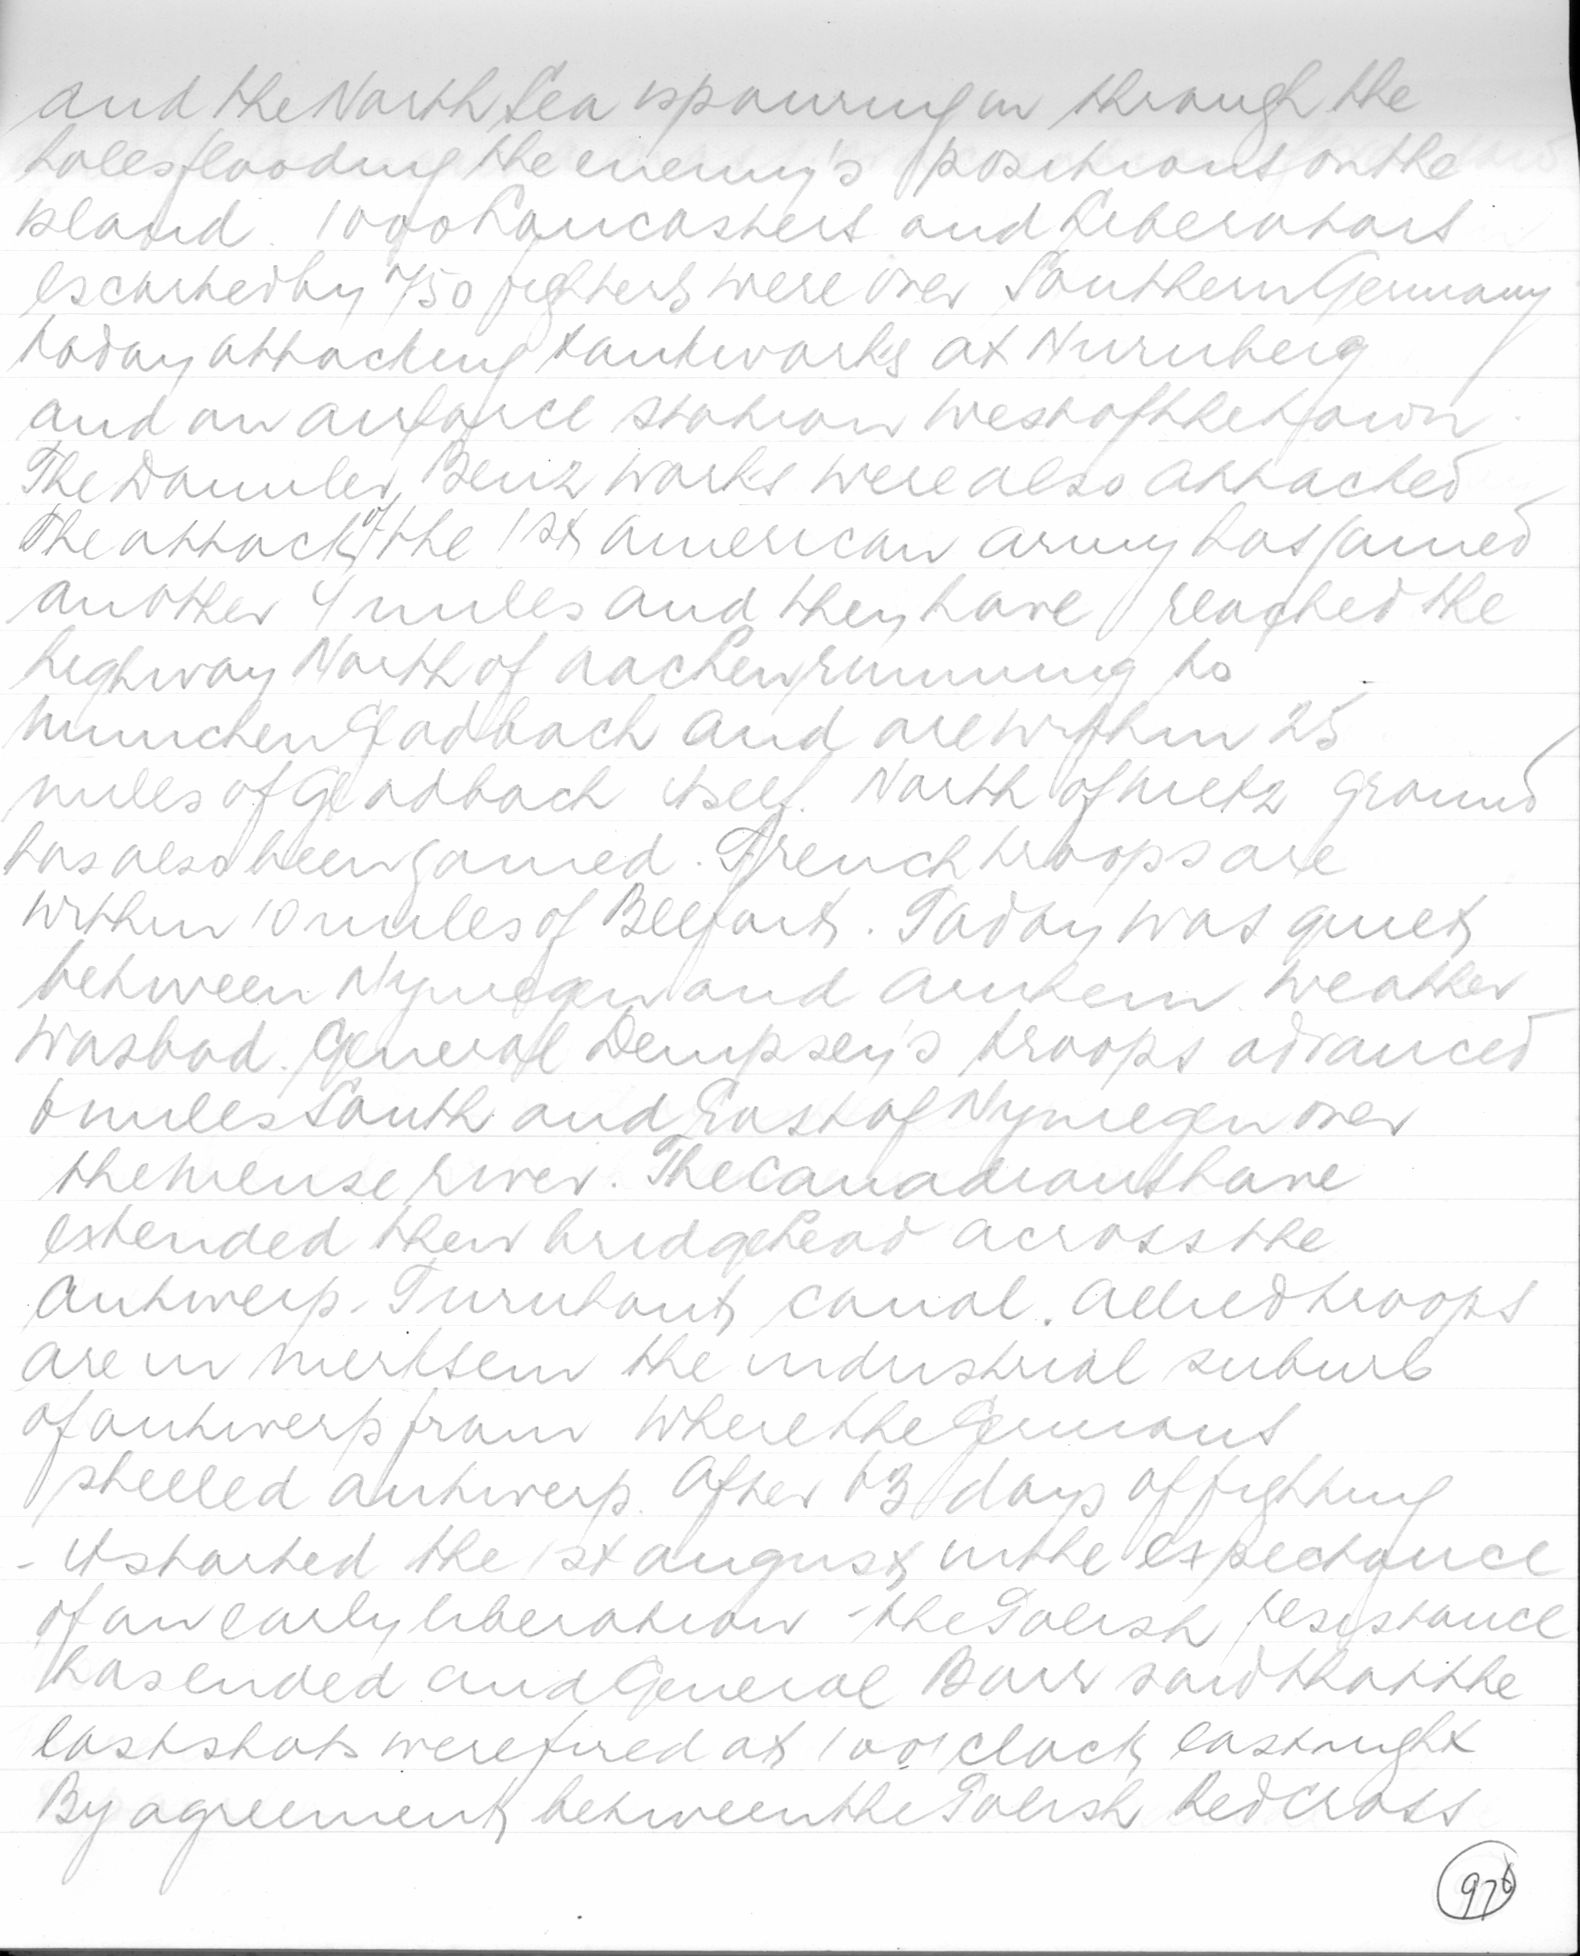 and the North Sea is pouring in through the
holes flooding the enemy's positions on the
island. 1000 Lancasters and Liberators
escorted by 750 fighters were over Southern Germany
today attacking tankworks at Nurnberg
and an airforce station west of the town.
The Daimler, Benz works were also attacked
The attack of the 1st American army has gained
another 4 miles and they have reached the
highway North of Aachen running to
Munchen Gladbach and are within 25
miles of Gladbach itself. North of Metz ground
has also been gained. French troops are
within 10 miles of Belfort. Today was quiet
between Nymegen and Arnhem. Weather
was bad. General Dempsey's troops advanced
6 miles South and East of Nymegen over
the Meuse river. The Canadians have
extended their bridgehead across the
Antwerp - Turnhout canal. Allied troops
are in Merksem the industrial suburb
of Antwerp from where the Germans
shelled Antwerp. After 63 days of fighting
- it started the 1st August in the expectance
of an early liberation - the Polish resistance
has ended and General Borr said that the
last shots were fired at 10 o'clock last night
By agreement between the Polish Red Cross
976